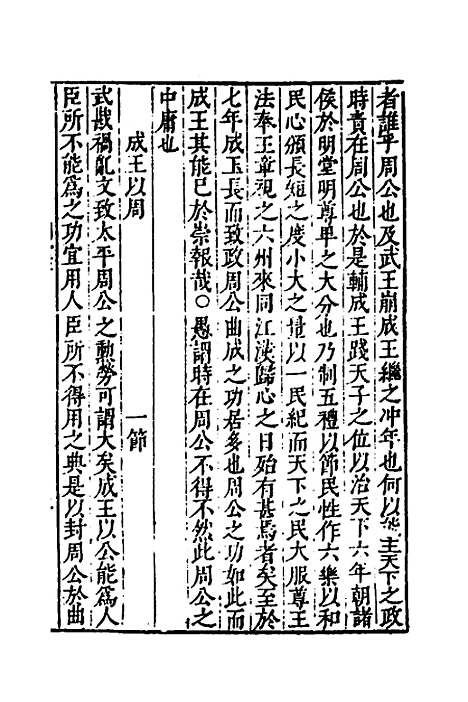 者誰乎周公也及武王崩成王繼之冲年也何以能主天下之政
時責在周公也於是輔成王踐天子之位以治天下六年朝諸
侯於明堂明尊卑之大分也乃制五禮以節民性作六樂以和
民心頒長短之度小大之量以一民紀而天下之民大服尊王
法奉王章視之六州來同江漢歸心之日殆有甚焉者矣至於
七年成王長而致政周公曲成之功居多也周公之功如此而
成王其能已於崇報哉○愚謂時在周公不得不然此周公之
中庸也
成王以周　一節
武戡禍亂文致太平周公之勲勞可謂大矣成王以公能爲人
臣所不能爲之功宜用人臣所不得用之典是以封周公於曲